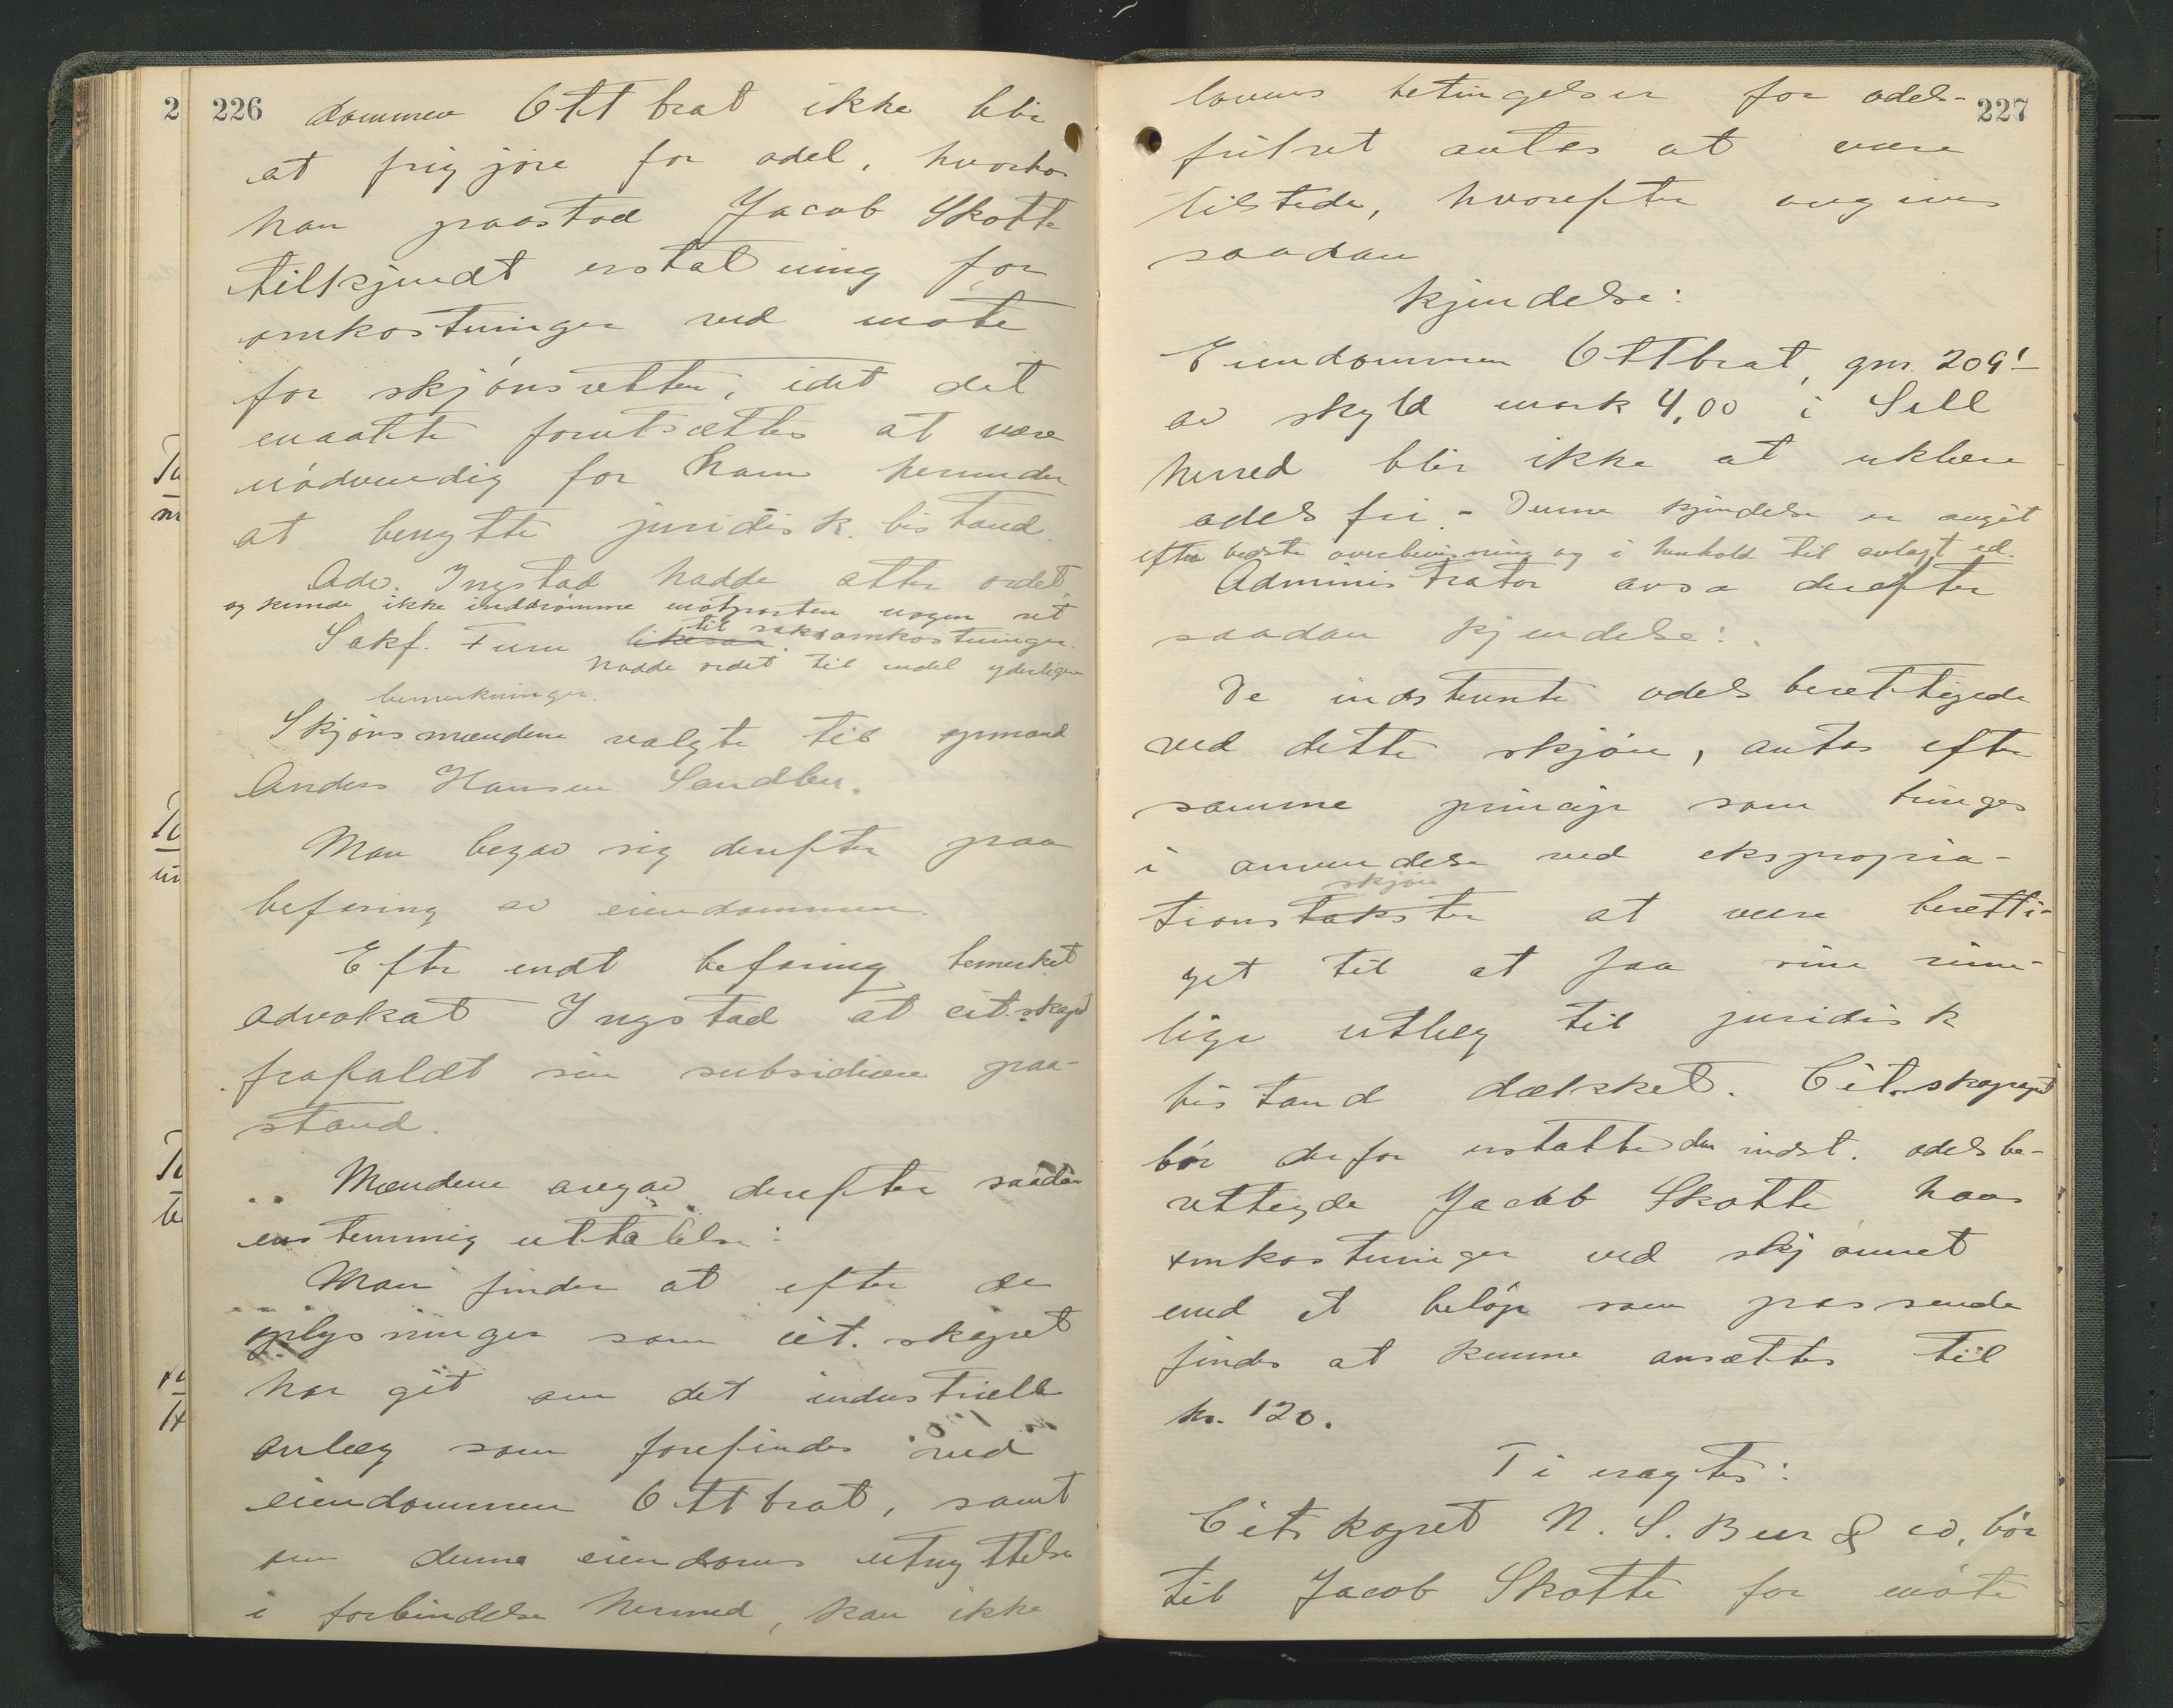 226
dommen Ottbrat ikke blir
at frigjøre for odel, hvorhos
han paastod Jacob Skotte
tilkjendt erstatning for
omkostninger ved møte
for skjønsretten, idet det
maatte forutsættes at være
nødvendig for ham herunder
at benytte juridisk bistand.
Adv. Ingstad hadde atter ordet,
og kunde ikke indrømme motparten nogen ret
til saksomkostninger.
Sakf. Furu likesaa.
hadde ordet til endel yderligere
bemerkninger.
Skjønsmændene valgte til opmand
Anders Hansen Sandbu.
Man begav sig derefter paa
befaring av eiendommen.
Efter endt befaring bemerket
advokat Ingstad at cit.skapet
frafaldt sin subsidiære paa-
stand.
Mændene avgav derefter saadan
enstemmig uttalelse:
Man finder at efter de
oplysninger som cit. skapet
har git om det industrielle
anlæg som forefindes ved
eiendommen Ottbrat, samt
om denne eiendoms utnyttelse
i forbindelse hermed, kan ikke
227
lovens betingelser for odels-
frihet antas at være
tilstede, hvorefter avgives
saadan
kjendelse:
Eiendommen Ottbrat, gnr. 209¹
av skyld mark 4,00 i Sell
herred blir ikke at erklære
odelsfri. - Denne kjendelse er avgit
efter bedste overbevisning og i henhold til avlagt ed.
Administrator avsa derefter
saadan kjendelse:
De indstevnte odelsberettigede
ved dette skjøn, antas efter
samme princip som bringes
i anvendelse ved ekspropria-
skjøn
tionstakster at være beretti-
get til at faa sine rime-
lige utlæg til juridisk
bistand dækket. Cit.skapet
bør derfor erstatte den indst. odelsbe-
rettigede Jacob Skotte hans
omkostninger ved skjønnet
med et beløp som passende
findes at kunne ansættes til
kr. 120.
Ti eragtes:
Citskapet N. S. Beer & co, bør
til Jacob Skotte for møte